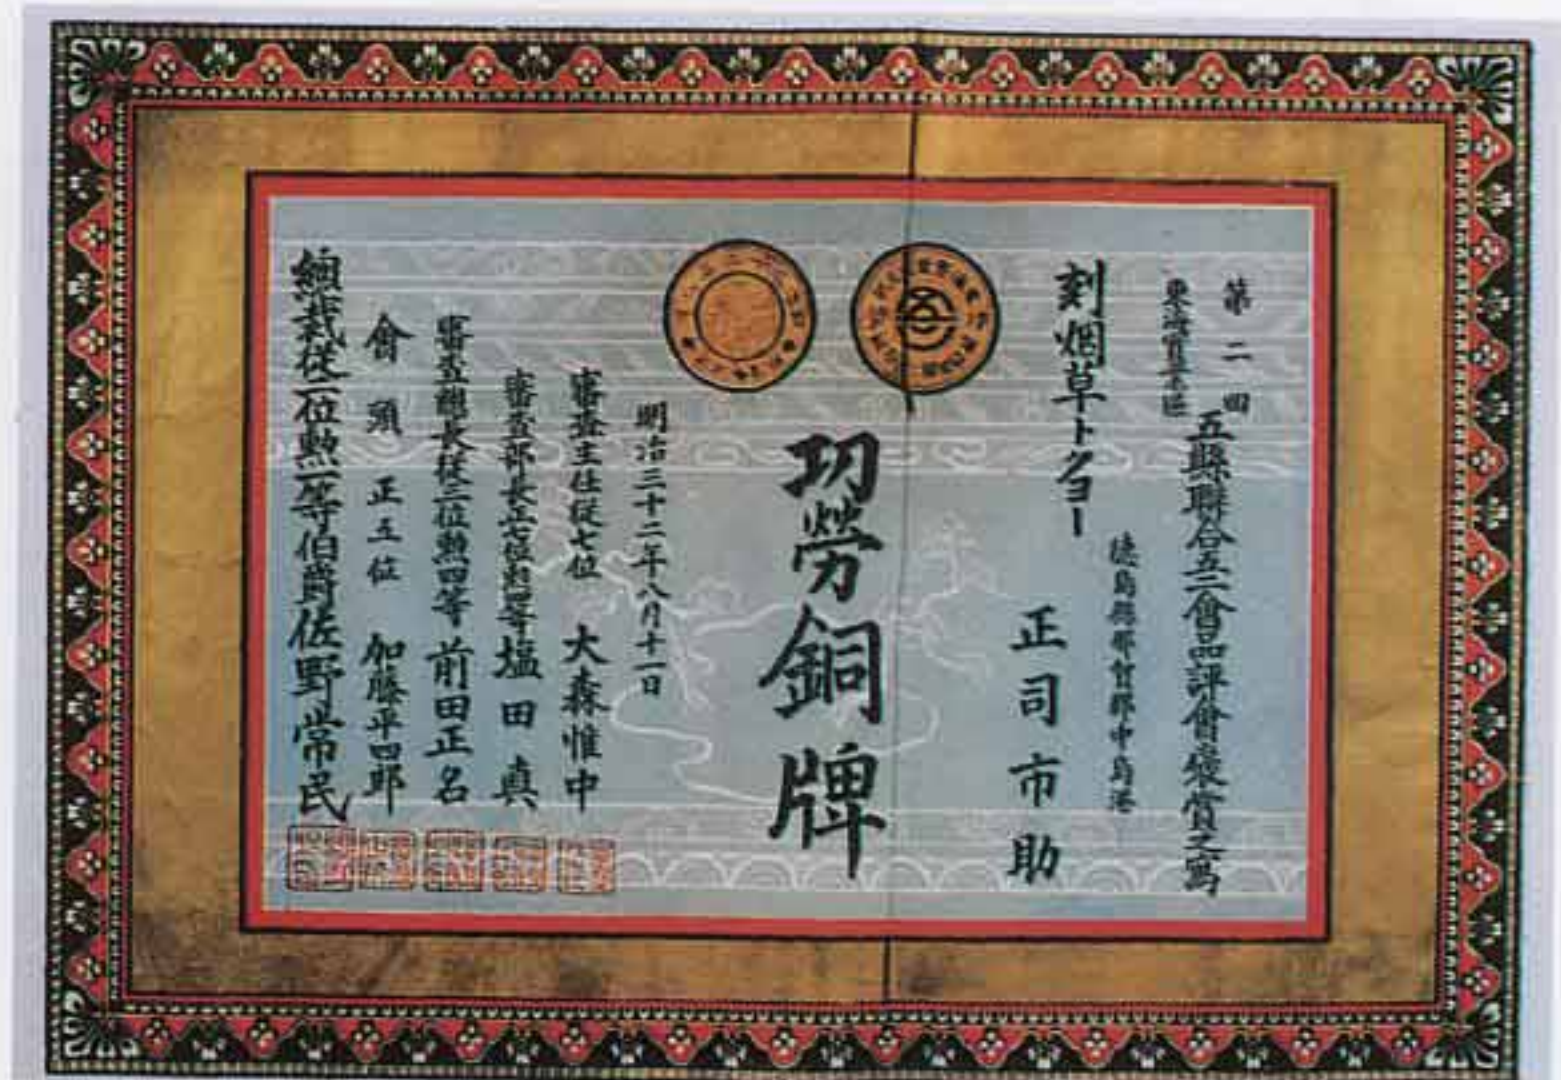 第二回
東海實業區
五縣聯合五二會品評會褒賞之寫
刻烟草トクヨー
德島縣那賀郡中島港
正司市助
功勞銅牌
明治三十二年八月十一日
審査主任從七位 大森惟中
審査部長正七位勲四等 塩田真
審査總長從三位勲四等 前田正名
會頭 正五位 加藤平四郎
總裁從二位勲一等伯爵佐野常民